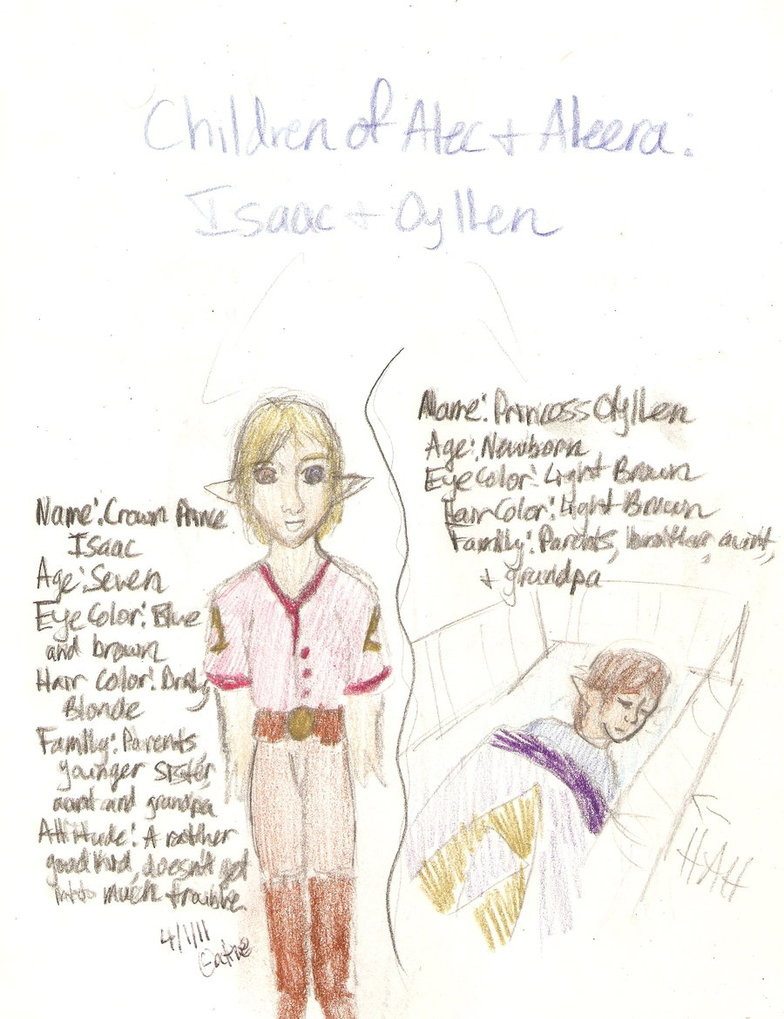 Children of Alec + Aleera:
Isaac + Oyllen
Name: Crown Prince
Isaac
Age: Seven
Eye Color: Blue
and brown
Hair Color: Dirty
Blonde
Family: Parents,
younger sister,
aunt and grandpa
Attitude: A rather
good kid, doesn't get
into much trouble.
4/1/11
Name: Princess Oyllen
Age: Newborn
Eye Color: Light Brown
Hair Color: Light Brown
Family: Parents, brother, aunt,
+ grandpa